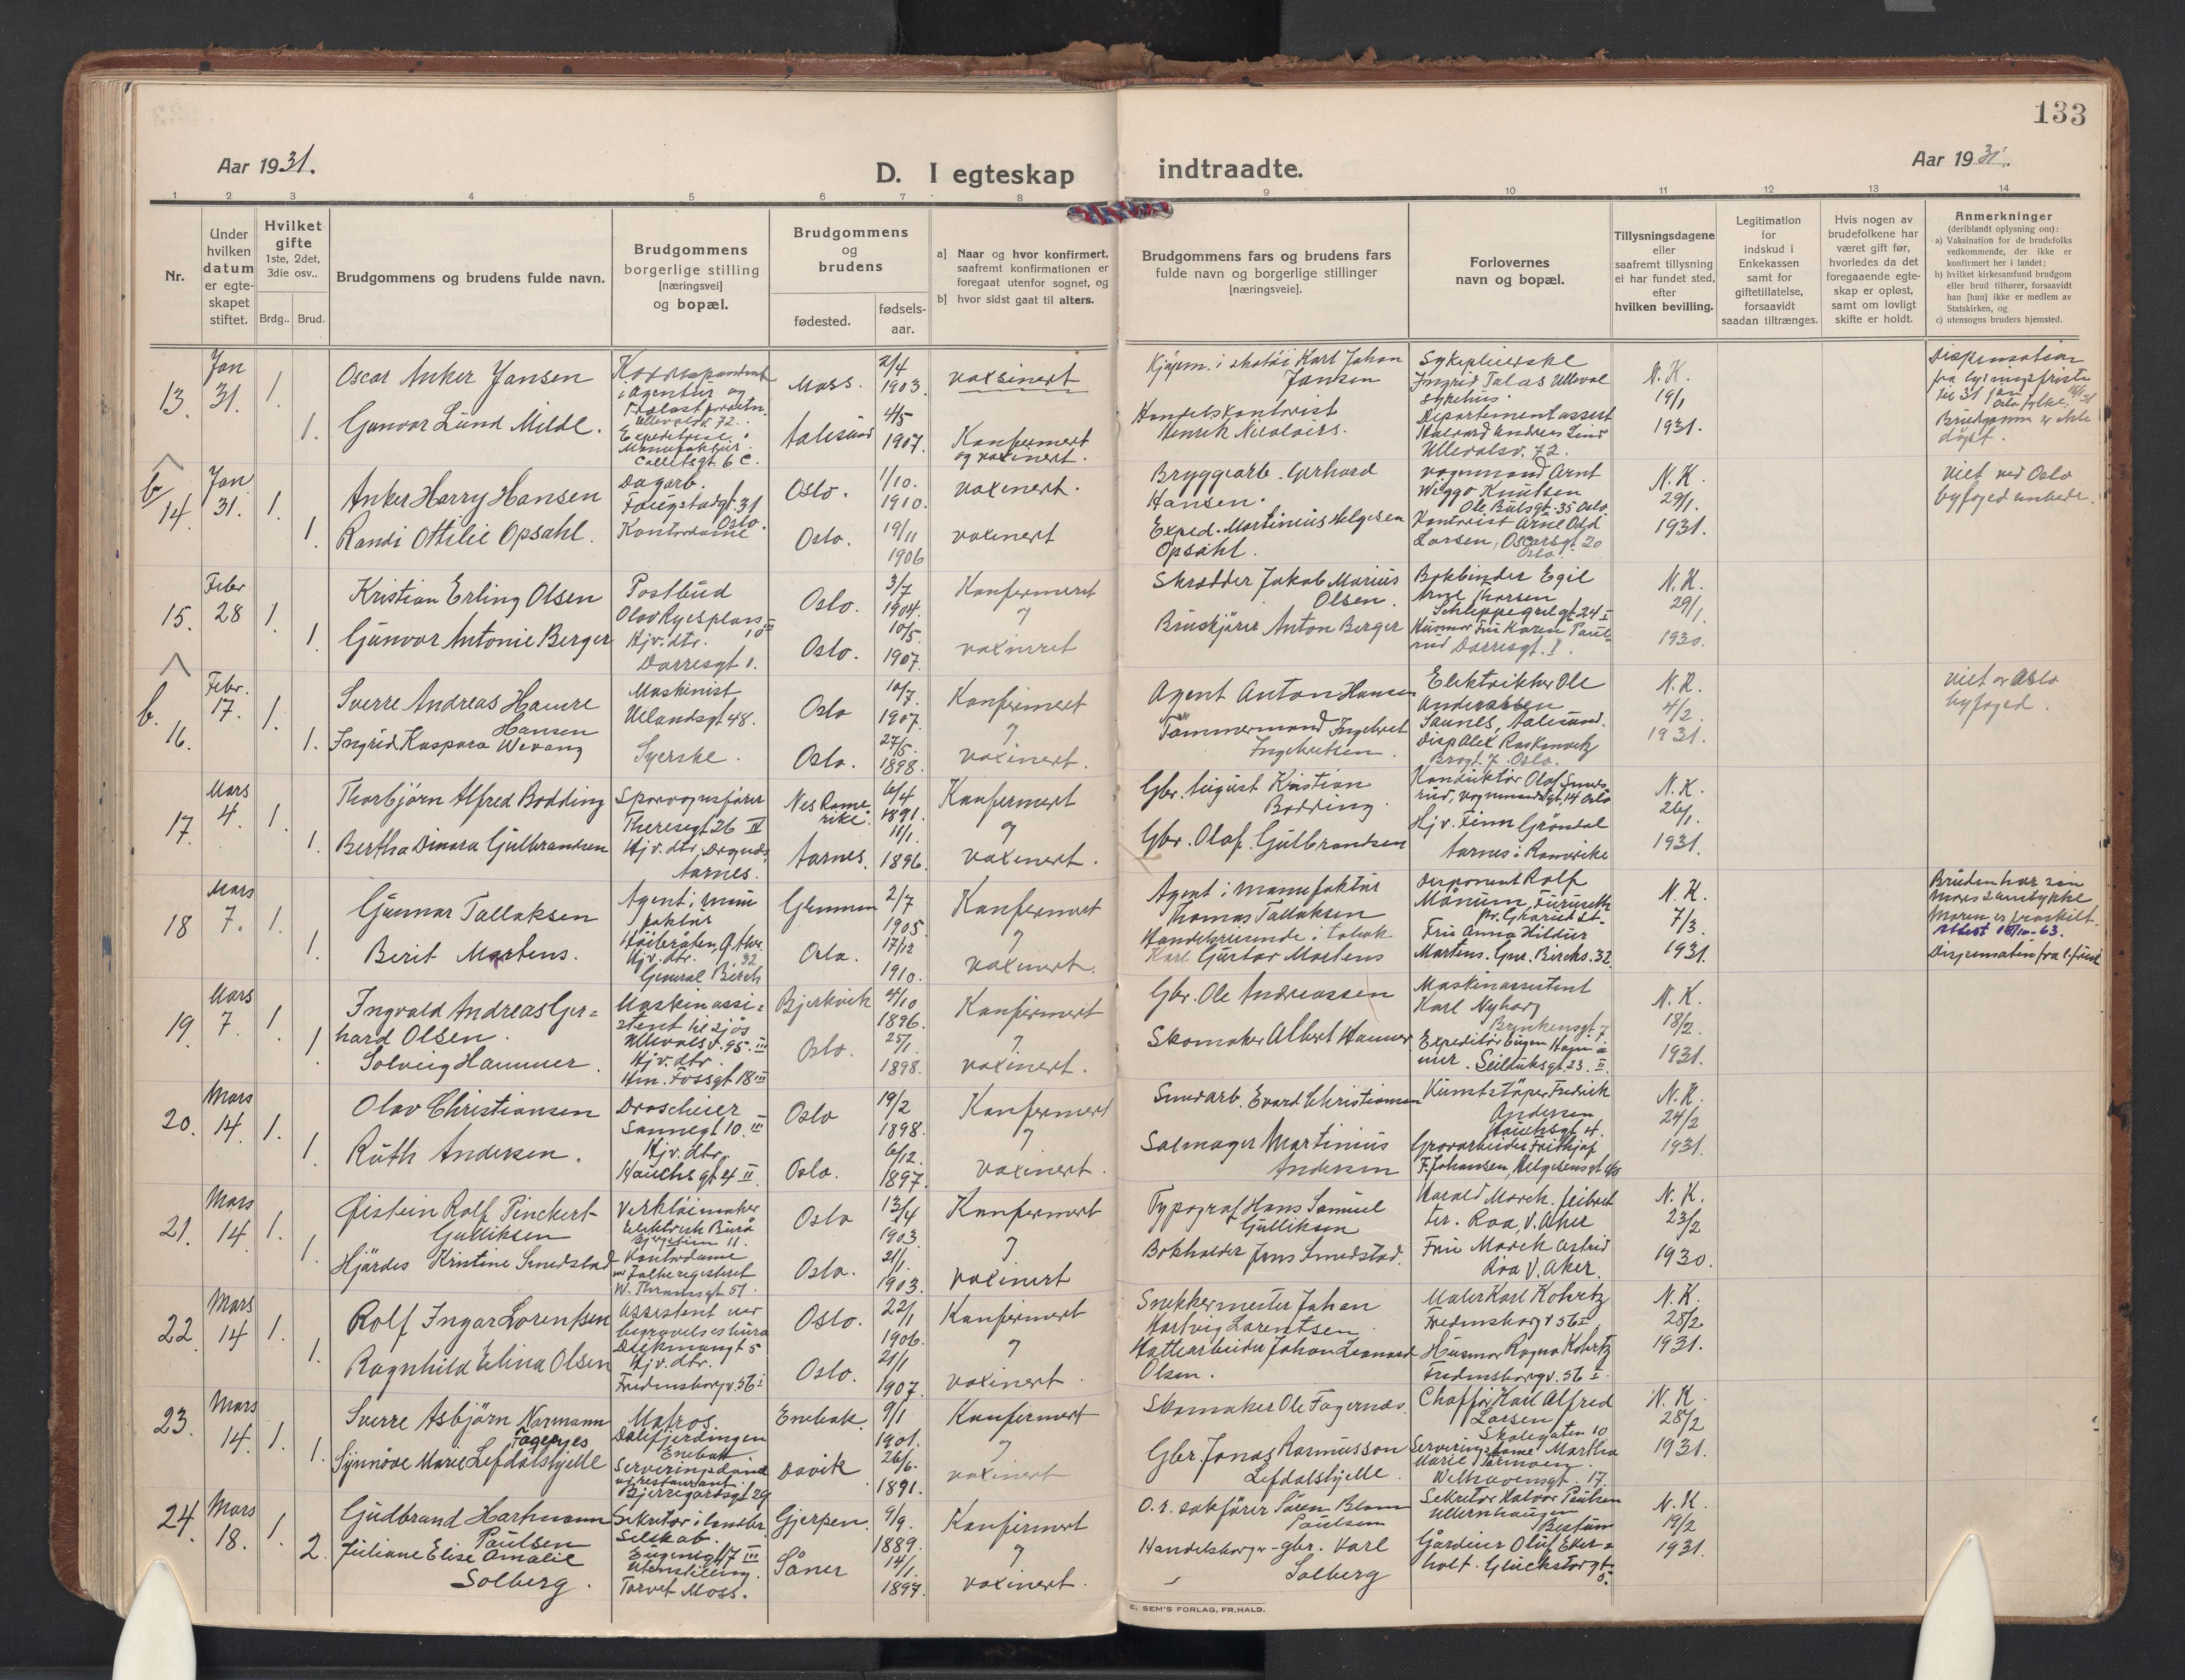 133
Aar 1931.
D. I egteskap indtraadte.
Aar 1931.
1 2 3 4 5 6 7 8 9 10 11 12 13 14
Nr.
Under hvilken datum er egteskapet stiftet.
Hvilket gifte 1ste, 2det, 3die osv..
Brdg.. Brud.
Brudgommens og brudens fulde navn.
Brudgommens borgerlige stilling [næringsvei] og bopæl.
Brudgommens og brudens
fødested.
fødsels-aar.
a] Naar og hvor konfirmert, saafremt konfirmationen er foregaat utenfor sognet, og
b] hvor sidst gaat til alters.
Brudgommens fars og brudens fars fulde navn og borgerlige stillinger [næringsveie].
Forlovernes navn og bopæl.
Tillysningsdagene eller saafremt tillysning ei har fundet sted, efter hvilken bevilling.
Legitimation for indskud i Enkekassen samt for giftetillatelse, forsaavidt saadan tiltrænges.
Hvis nogen av brudefolkene har været gift før, hvorledes da det foregaaende egteskap er opløst, samt om lovligt skifte er holdt.
Anmerkninger
(deriblandt oplysning om):
a) Vaksination for de brudefolks vedkommende, der ikke er konfirmert her i landet;
b) hvilket kirkesamfund brudgom eller brud tilhører, forsaavidt han [hun] ikke er medlem av Statskirken, og
c) utensogns bruders hjemsted.
13. Jan 31. 1. Oscar Anker Jansen
Moss. 2/4 1903. vaksinert
Kjøpm. i Karl Johan Jansen
Sykepleierske Ingrid Talas Ulleval sykehus
N.K. 19/1 1931.
Dispensation fra lysningsfriste til 31 jan Oslo fylke
Brudgommen er ikke døpt.
1. Gunvor Lund Milde.
Ullevolsv. 72.
Aalesund 4/5 1907 Konfermert og vaxinert.
Handelskontorist Henrik Nicolai
Departementassist Halvard Andreas Lund Ullevolsv. 72.
b 14. Jan 31. 1. Anker Harry Hansen
Dagarb. 31 Oslo.
Oslo. 1/10. 1910. vaxinert.
Bryggearb. Gerhard Hansen.
vognmand Arnt Wiggo Knutsen Ole Bulsgt. 35 Oslo
N.K. 29/1. 1931.
Viet ved Oslo byfogedembede.
1. Randi Ottilie Opsahl.
Kontordame
Oslo. 19/11 1906 vaxinert
Exped. Martinius Helgesen Opsahl.
Kontorist Arne Odd Larsen, Oscarsgt. 20 Oslo.
15. Febr 28 1. Kristian Erling Olsen
Postbud Olav Ryesplass 10
Oslo. 3/7 1904. Konfermert
Skrædder Jakob Marius Olsen.
Bokbinder Egil Arne Thorsen Schleppegrelgt 24 I
N.K. 29/1. 1930.
1. Gunvor Antonie Berger
Hjv. dtr. Darresgt 1.
Oslo. 10/5. 1907. og vaxineret
Bruskjører Anton Berger
Husmor Fru Karen Paulrud Darresgt. 1.
b. 16. Febr. 17. 1. Sverre Andreas Hamre Hansen
Maskinist Uelandsgt 48.
Oslo 10/7. 1907. Konfermert
Agent Anton Hansen
Elektrikker Ole Anderssen Aalesund.
N.K. 4/2. 1931.
viet av Oslo byfoged.
1. Ingrid Kaspara Wevang
Syerske.
Oslo. 27/5. 1898. og vaxinert.
Tømmermand Ingebret Ingebretsen.
17. Mars 4. 1. Thorbjørn Alfred Bodding
Sporvognsfører Theresegt 26 IV
Nes Romerike. 6/4 1891. Konfermert
Gbr. August Kristian Bodding.
Konduktør Olaf
N.K. 26/1. 1931.
1. Bertha Dinora Gulbrandsen
Hjv. dtr. Aarnes.
Aarnes. 11/1. 1896. og vaxinert.
Gbr. Olaf. Gulbrandsen
Hjv. Finn Grøndal Aarnes i Romerike
18 Mars 7. 1. Gunnar Tallaksen
Agent i manufaktur
Glemmen 2/7 1905. Konfermert
Agent i manufaktur Thomas Tallaksen
Disponent Rolf
N.K. 7/3. 1931.
Bruden har sin mors samtykke Moren er fraskilt.
Dispensation fra l. frist
1. Berit Martens.
Hjv. dtr. General Birch 32
Oslo. 17/12 1910. og vaxinert.
Handelsreisende i tobak Karl Gustav Martens
Fru Anna Hildur Martens. Gen. Birchs. 32
19. Mars 7. 1. Ingvald Andreas Gerhard Olsen.
Maskinassistent til sjøs Ullevolsv. 95. III
Bjerkvik 4/10 1896. Konfermert
Gbr. Ole Andreassen
Maskinassistent Karl Nyborg
N.K. 18/2. 1931.
1. Solveig Hammer.
Hjv. dtr. Hm. Fossgt 18 III
Oslo. 25/1. 1898. og vaxinert.
Skomaker Albert Hammer
Expeditør Eugen Hammer. Seilduksgt. 23. II.
20. Mars 14. 1. Olav Christiansen
Droscheier Sannegt 10. III
Oslo 19/2 1898. Konfermert
Smedarb. Evard Christiansen
Kunststøper Fredrik Andersen Hauchsgt 4.
N.K. 24/2 1931.
1. Ruth Andersen.
Hjv. dtr. Hauchsgt 4 II
Oslo. 6/12. 1897. og vaxinert.
Salmager Martinius Andersen
Grovarbeider Frithjof F. Johansen, Helgesensgt
21. Mars 14. 1. Øistein Rolf Pinckert-Gulliksen
Verktøimaker Elektrisk Burå
Oslo 13/4 1903. Konfermert
Typograf Hans Samuel Gulliksen
Harald Morck. Roa, V. Aker
N.K. 23/2 1930.
1. Hjördis Kristine Smedstad
Kontordame ved Folkeregisteret W. Thranesgt 51.
Oslo. 21/1. 1903. og vaxinert
Bokholder Jens Smedstad.
Fru Morck Astrid Roa V. Aker.
22. Mars 14 1. Rolf Ingar Lorentsen
Assistent ved begravelsesbura 5
Oslo. 22/1 1906. Konfermert
Snekkermester Johan Hartvig Lorentsen.
Maler Karl Kohrtz Fredensborgv 56 I
N.K. 28/2 1931.
1. Ragnhild Elina Olsen
Hjv. dtr. Fredensborgv. 56 I
Oslo. 21/1 1907. og vaxinert.
Hattearbeider Johan Leonard Olsen.
Husmor Ragna Kohrtz Fredensborgv. 56 I.
23. Mars 14. 1. Sverre Asbjørn Normann Fagernes
Matros. Dalefjerdingen Enebak
Enebak 9/1 1901. Konfermert
Skomaker Ole Fagernæs.
Chaffør Karl Alfred Larsen Skolegaten 10
N.K. 28/2 1931.
1. Synnöve Marie Lefdalshjelle
Serveringsdame v/ restaurant Bjerregårdsgt 29
Davik 26/6. 1891. og vaxinert
Gbr. Jonas Rasmusson Lefdalshjelle.
Serveringsdame Martha Marie Welhavensgt. 17.
24. Mars 18. 1. Gudbrand Harhmann Paulsen
Sekretær i Selskab. Eugenigt 17 III
Gjerpen. 9/9. 1889. Konfirmert
O.r. sakfører Søren Blom Paulsen
Sekretær Halvor Paulsen Ullernhaugen Bestum
N.K. 19/2 1931.
2. Juliane Elise Amalie Solberg.
Torvet Moss.
Såner 14/1. 1897. og vaxinert.
Handelsborger-gbr. Karl Solberg
Gårdeier Oluf Ekerholt. Glückstorgt 5.
E. SEM'S FORLAG, FR.HALD.